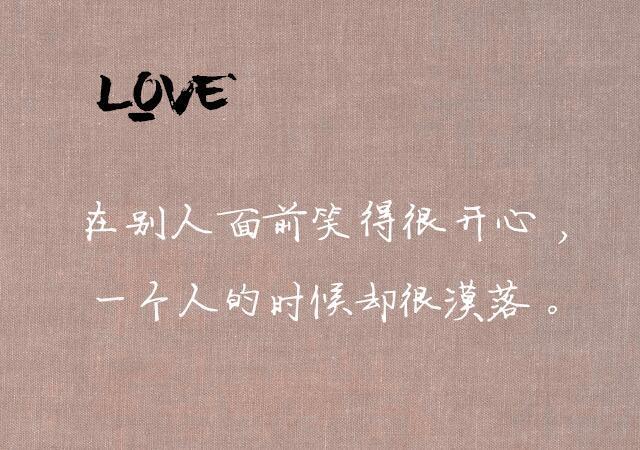 LOVE
在别人面前笑得很开心，
一个人的时候却很漠落。